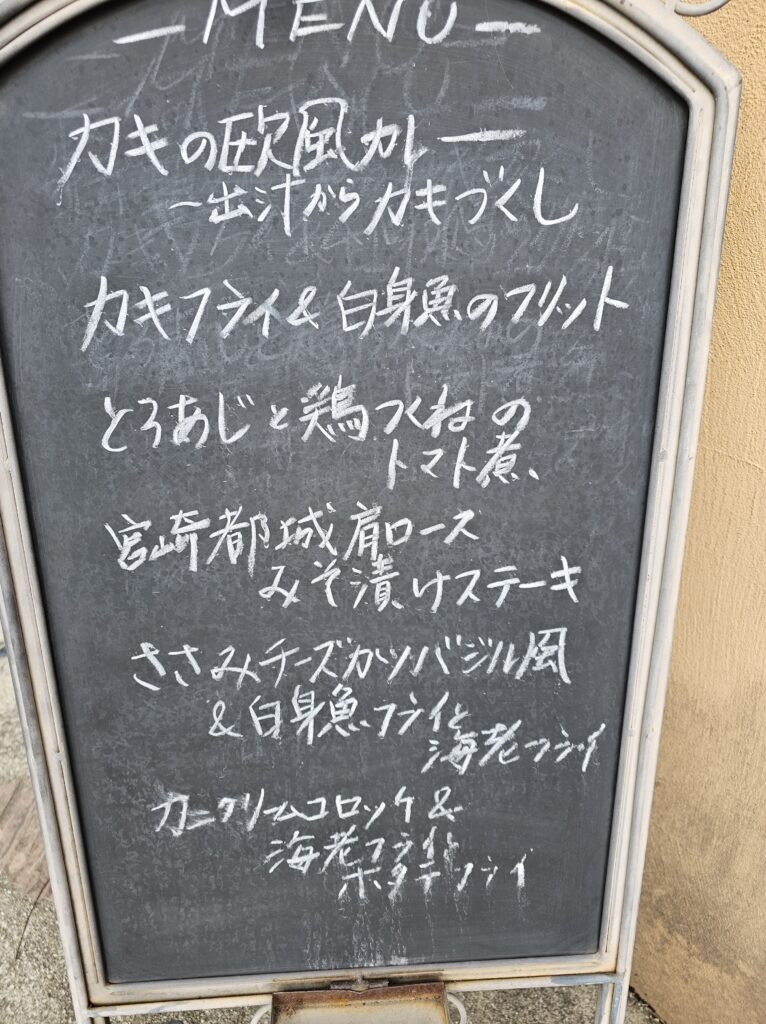 — MENU —
カキの欧風カレー
～出汁からカキづくし
カキフライ & 白身魚のフリット
とろあじと鶏つくねの
トマト煮
宮崎都城肩ロース
みそ漬けステーキ
ささみチーズカツバジル風
& 白身魚フライと
海老フライ
カニクリームコロッケ &
海老フライと
ホタテフライ